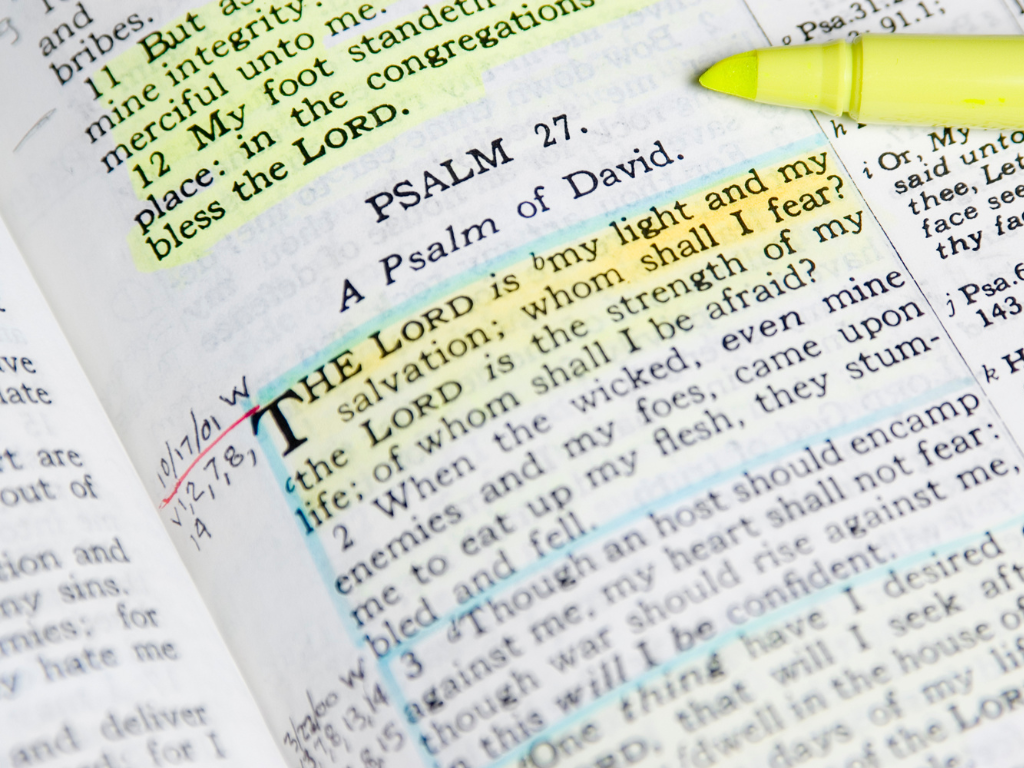 and
bribes.
11 But as
mine integrity:
merciful unto me.
12 My foot standeth
place: in the congregations
bless the LORD.
PSALM 27.
A Psalm of David.
THE LORD is bmy light and my
salvation; whom shall I fear?
the LORD is the strength of my
life; of whom shall I be afraid?
2 When the wicked, even mine
enemies and my foes, came upon
me to eat up my flesh, they stum-
bled and fell.
3 Though an host should encamp
against me, my heart shall not fear:
though war should rise against me,
in this will I be confident.
One thing have I desired
that will I seek aft
dwell in the house of
days of my lif
of the LOR
10/17/01 W
v1,2,7,8,
14
W
7,8,13,14
8,15
late
rt are
out of
tion and
ny sins.
mies; for
y hate me
and deliver
for I
Psa.31.2
91.1;
h
i Or, My
said unto
thee, Let
face see
thy fac
j Psa.6
143.
k H